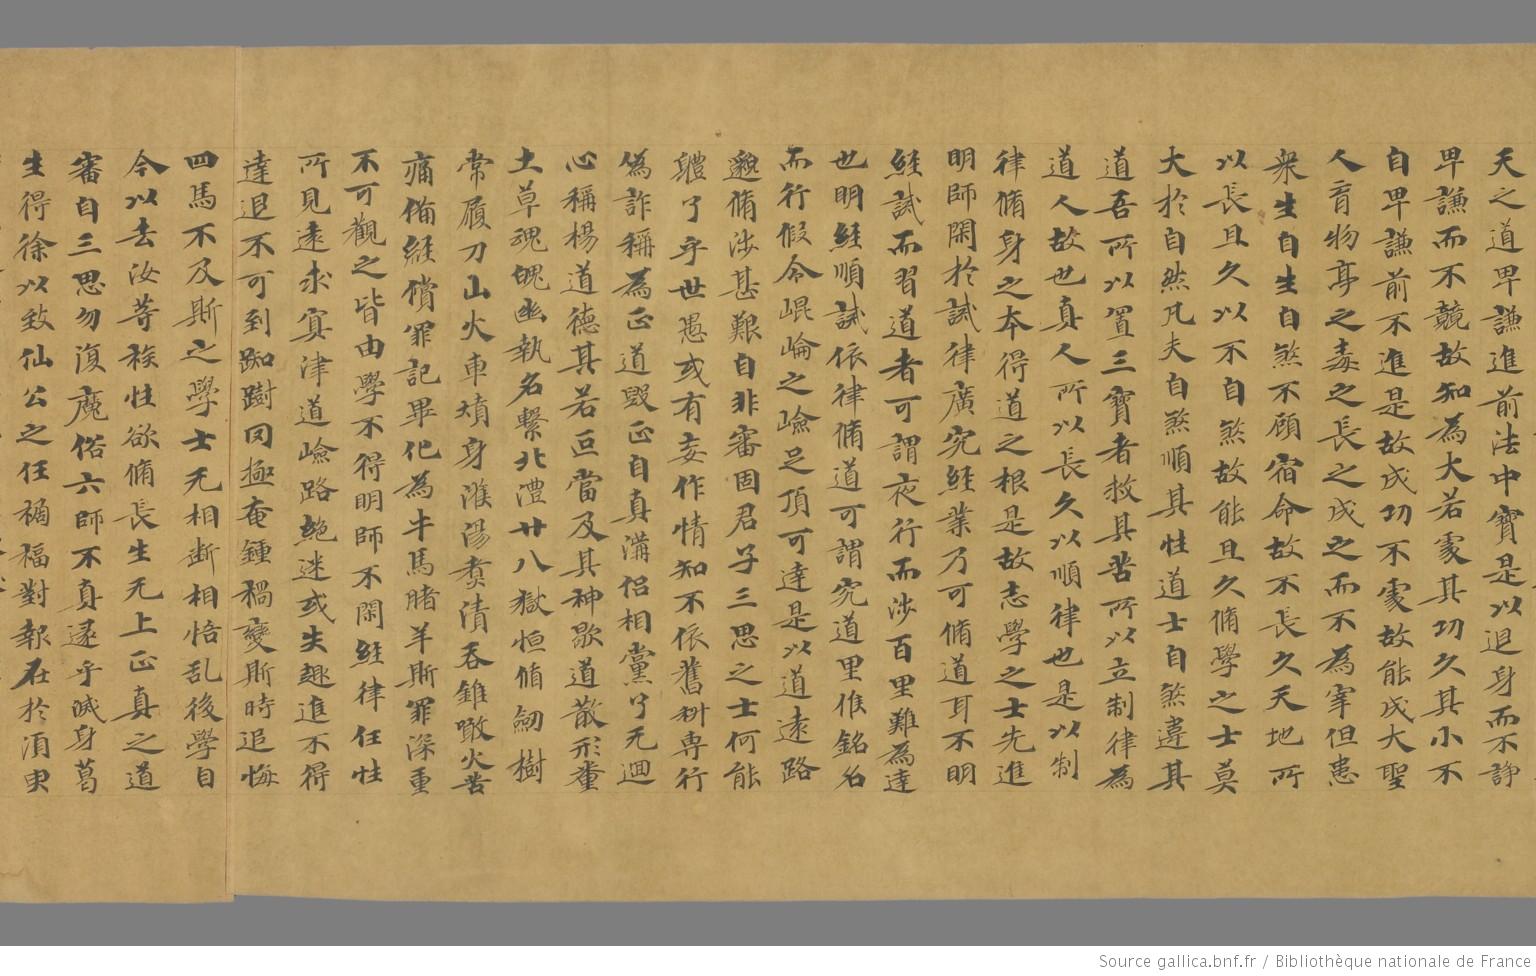 天之道卑謙進前法中寶是以退身而不諍
卑謙而不競故知為大若䝉其功久其小不
自卑謙前不進是故成功不䝉故能成大聖
人育物亭之毒之長之成之而不為宰但恚
衆生自生自煞不顧宿命故不長久天地所
以長且久以不自煞故能且久脩學之士莫
大於自然凡夫自煞順其性道士自煞違其
道吾所以置三寶者救其苦所以立制律為
道人故也真人所以長久以順律也是以制
律脩身之本得道之根是故志學之士先進
明師閑於試律廣究經業乃可脩道耳不明
經試而習道者可謂夜行而涉百里難為達
也明經順試依律脩道可謂究道里倠銘名
而行假令崐崘之嶮足頂可達是以道遠路
邈脩涉甚艱自非審固君子三思之士何能
軆了乎世愚或有妄作情知不依舊科専行
偽詐稱為正道毀正自真溝侣相黨了无迴
心稱楊道德其若叵當及其神歇道散形橐
土草魂魄幽執名繫北澧廿八獄恒脩劒樹
常履刀山火車熕身濰湯煑漬吞錐噉火苦
痛備經償罪記畢化為牛馬睹羊斯罪深重
不可觀之皆由學不得明師不閑經律任性
所見遠求㝠津道嶮路絶迷或失趣進不得
達退不可到踟蹰罔極奄鍾𥚽變斯時追悔
四馬不及斯之學士无相断相悟乱後學自
今以去汝等祑性欲脩長生无上正真之道
審自三思勿復魔俗六師不真遂乎滅身葛
生得徐以致仙公之任𥚽福對報在於湏臾